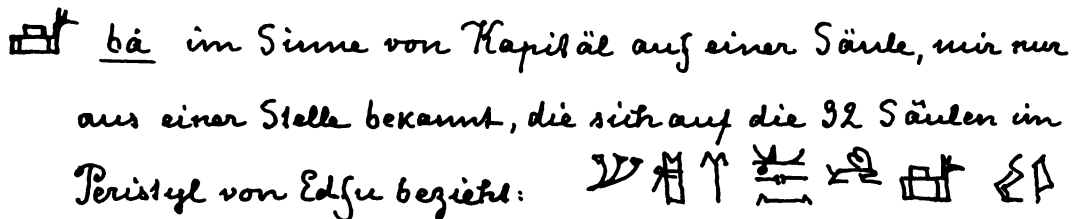 bȧ im Sinne von Kapitäl auf einer Säule, mir nur
aus einer Stelle bekannt, die sich auf die 32 Säulen im
Peristyl von Edfu bezieht: